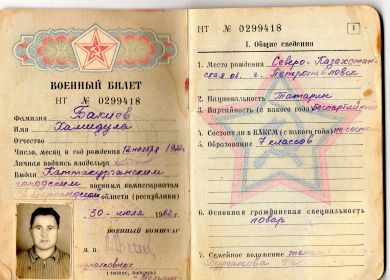 ВОЕННЫЙ БИЛЕТ
НТ № 0299418
Фамилия Бакиев
Имя Хамидула
Отчество
Число, месяц и год рождения 12 ноября 1920
Личная подпись владельца
Выдан Каттакурганским
городским военным комиссариатом
области (республики)
„30“ июля 1962 г.
ВОЕННЫЙ КОМИССАР
М. П.
подполковник
(звание, подпись)
НТ № 0299418
1
I. Общие сведения
1. Место рождения Северо-Казахстан-
ская об. г. Петропавловск
2. Национальность Татарин
3. Партийность (с какого года) беспартийный
4. Состоит ли в ВЛКСМ (с какого года) не состоит
5. Образование 7 классов
6. Основная гражданская специальность
повар
7. Семейное положение жена